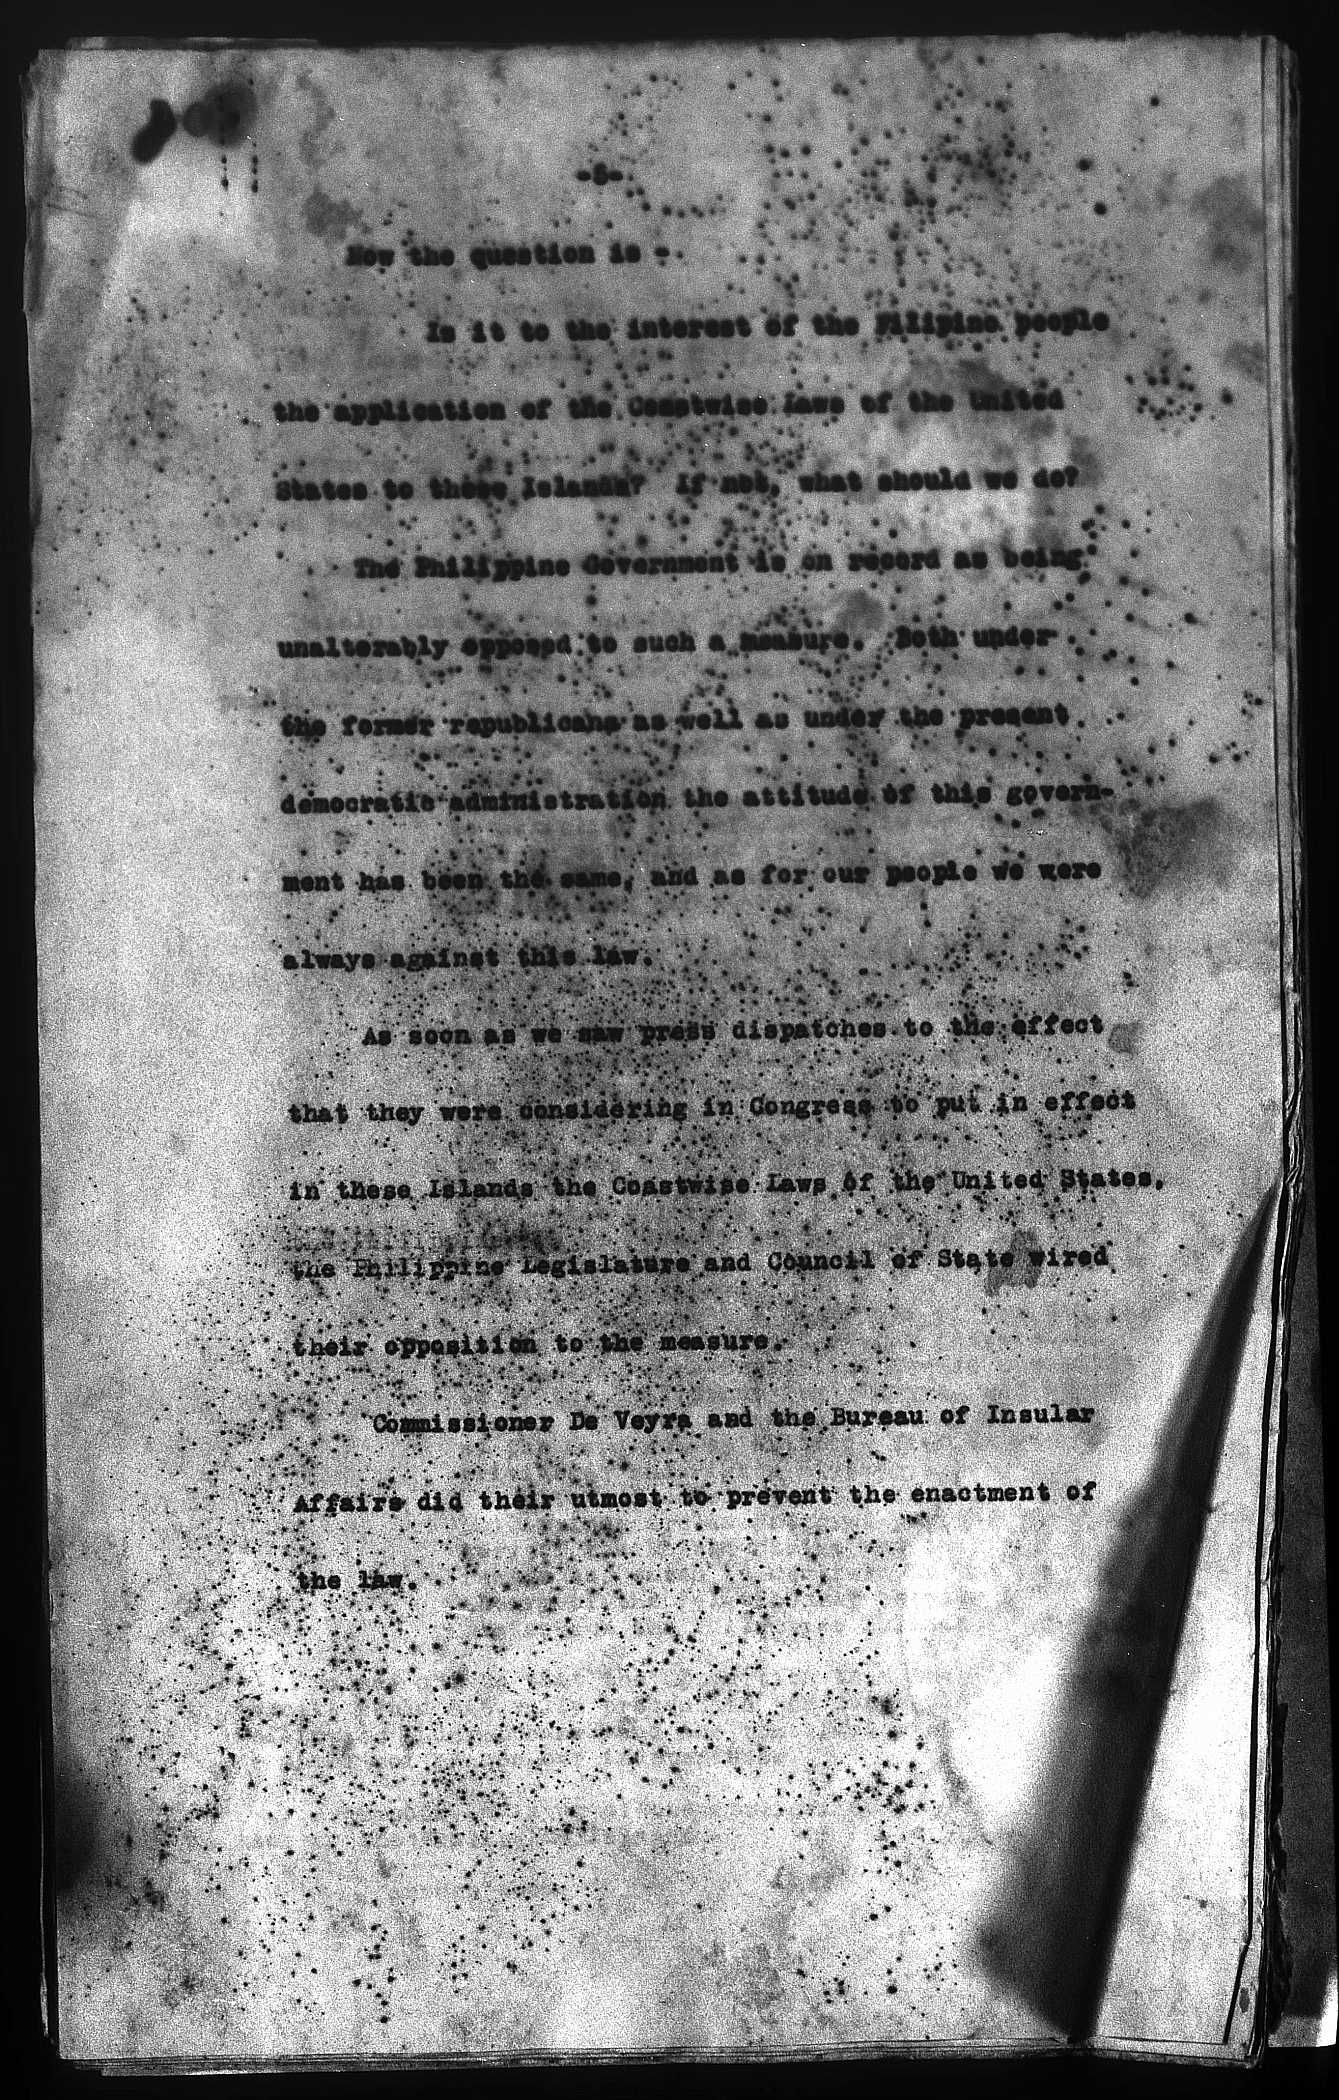 -5-
Now the question is -
Is it to the interest of the Filipino people
the application of the Coastwise Laws of the United
States to these Islands? If not, what should we do?
The Philippine Government is on record as being
unalterably opposed to such a measure. Both under
the former republicans as well as under the present
democratic administration the attitude of this govern-
ment has been the same, and as for our people we were
always against this law.
As soon as we saw press dispatches to the effect
that they were considering in Congress to put in effect
in these Islands the Coastwise Laws of the United States,
the Philippine Legislature and Council of State wired
their opposition to the measure.
Commissioner De Veyra and the Bureau of Insular
Affairs did their utmost to prevent the enactment of
the law.